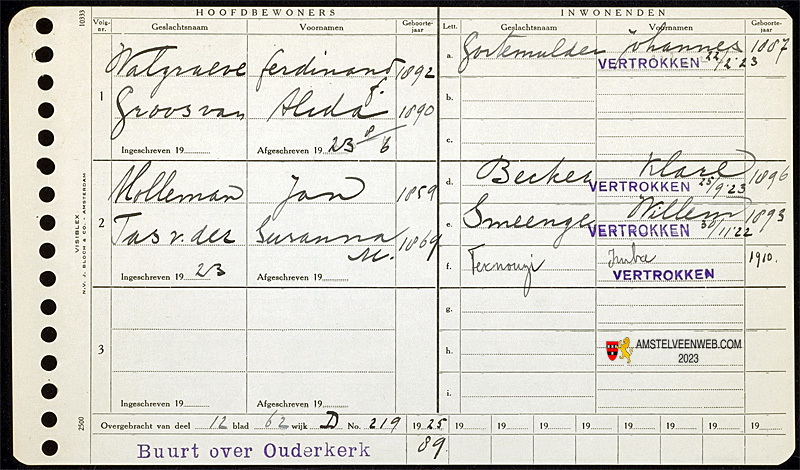 HOOFDBEWONERS
Volg-nr. Geslachtsnaam Voornamen Geboorte-jaar
1
Walgraeve Ferdinand J. 1892
Groos van Aleda 1890
Ingeschreven 19 Afgeschreven 19 23 8/6
2
Molleman Jan 1859
Tas v. der Susanna M. 1869
Ingeschreven 19 23 Afgeschreven 19
3
Ingeschreven 19 Afgeschreven 19
INWONENDEN
Lett. Geslachtsnaam Voornamen Geboorte-jaar
a. Gortemulder Johannes 1887
VERTROKKEN 22/2 '23
b.
c.
d. Becker Klare 1896
VERTROKKEN 25/9 '23
e. Smeenge Willem 1893
VERTROKKEN 30/11 '22
f. 1910.
VERTROKKEN
g.
h.
i.
AMSTELVEENWEB.COM
2023
Overgebracht van deel 12 blad 62 wijk D No. 219 19 25 19 19 19 19 19 19 19 19
Buurt over Ouderkerk 89.
10333
VISIBLEX
N.V. J. BLOCH & CO. - AMSTERDAM
2500